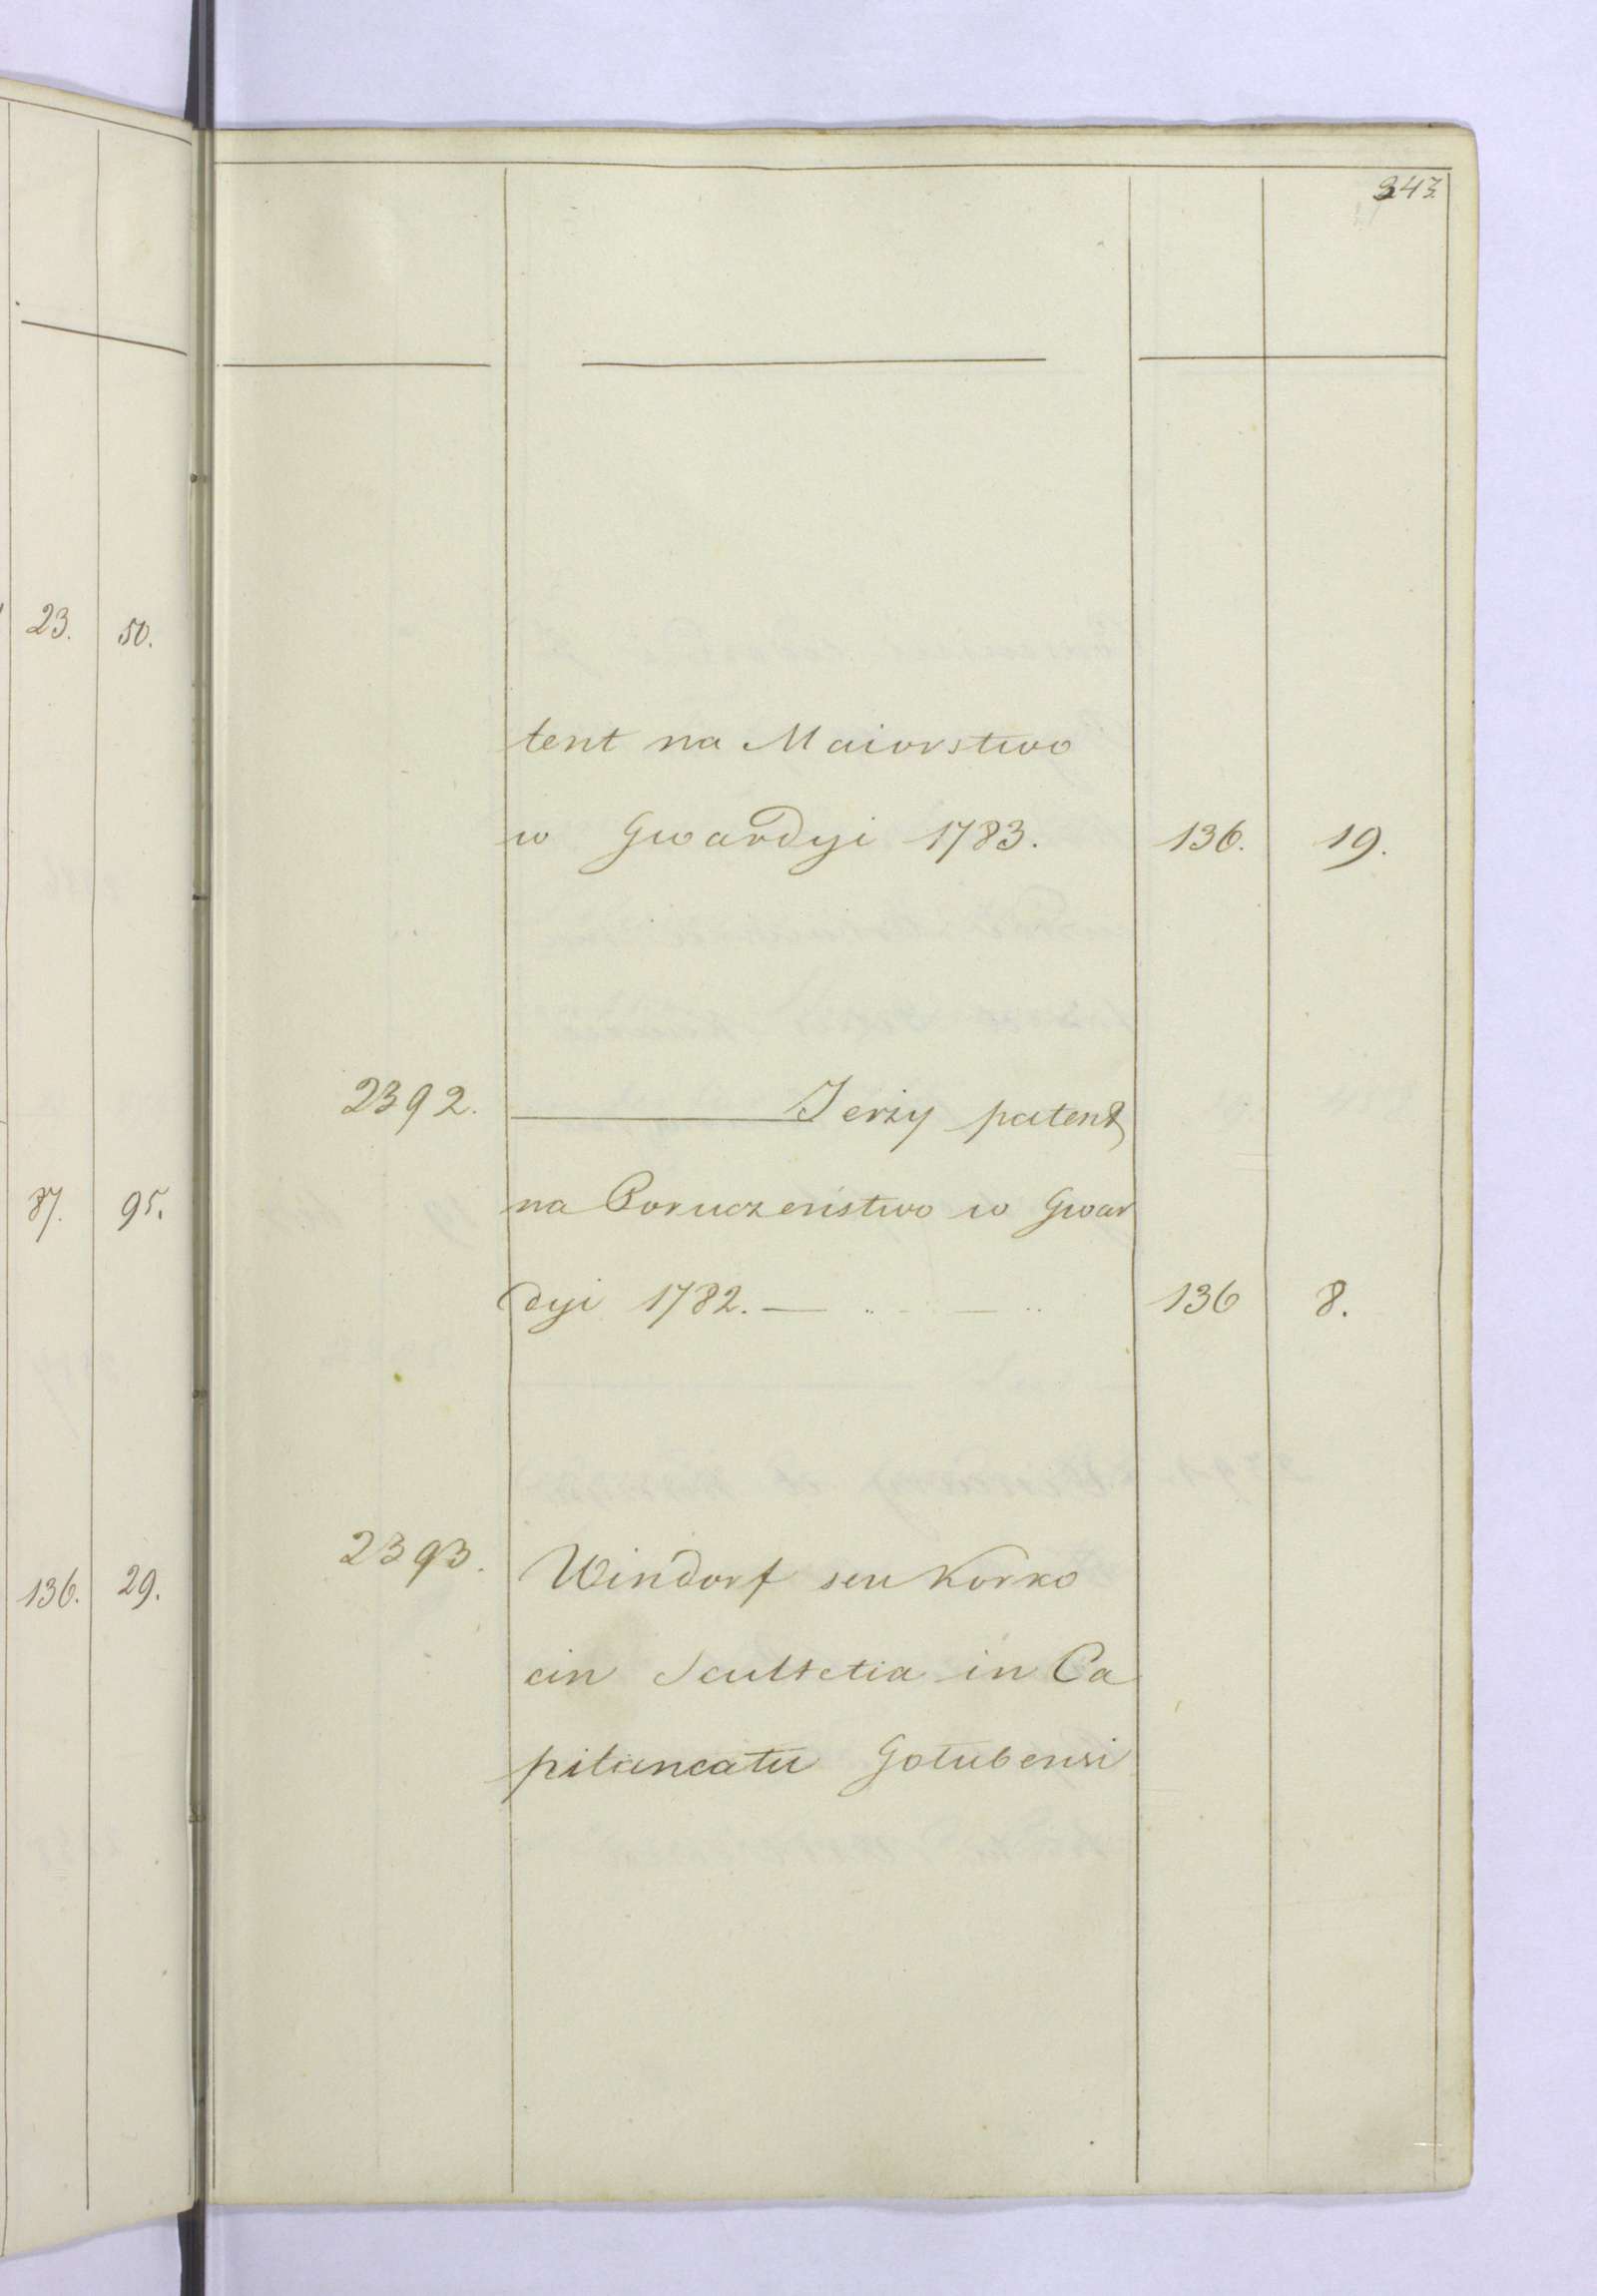 343
23. 50.
tent na Maiorstwo
w Gwardyi 1783. 136. 19.
2392. Jerzy patent
87. 95. na Poruczeństwo w Gwar
dyi 1782. 136 8.
2393. Windorf seu Korko
136. 29. cin Scultetia in Ca
pitaneatu Gołubensi